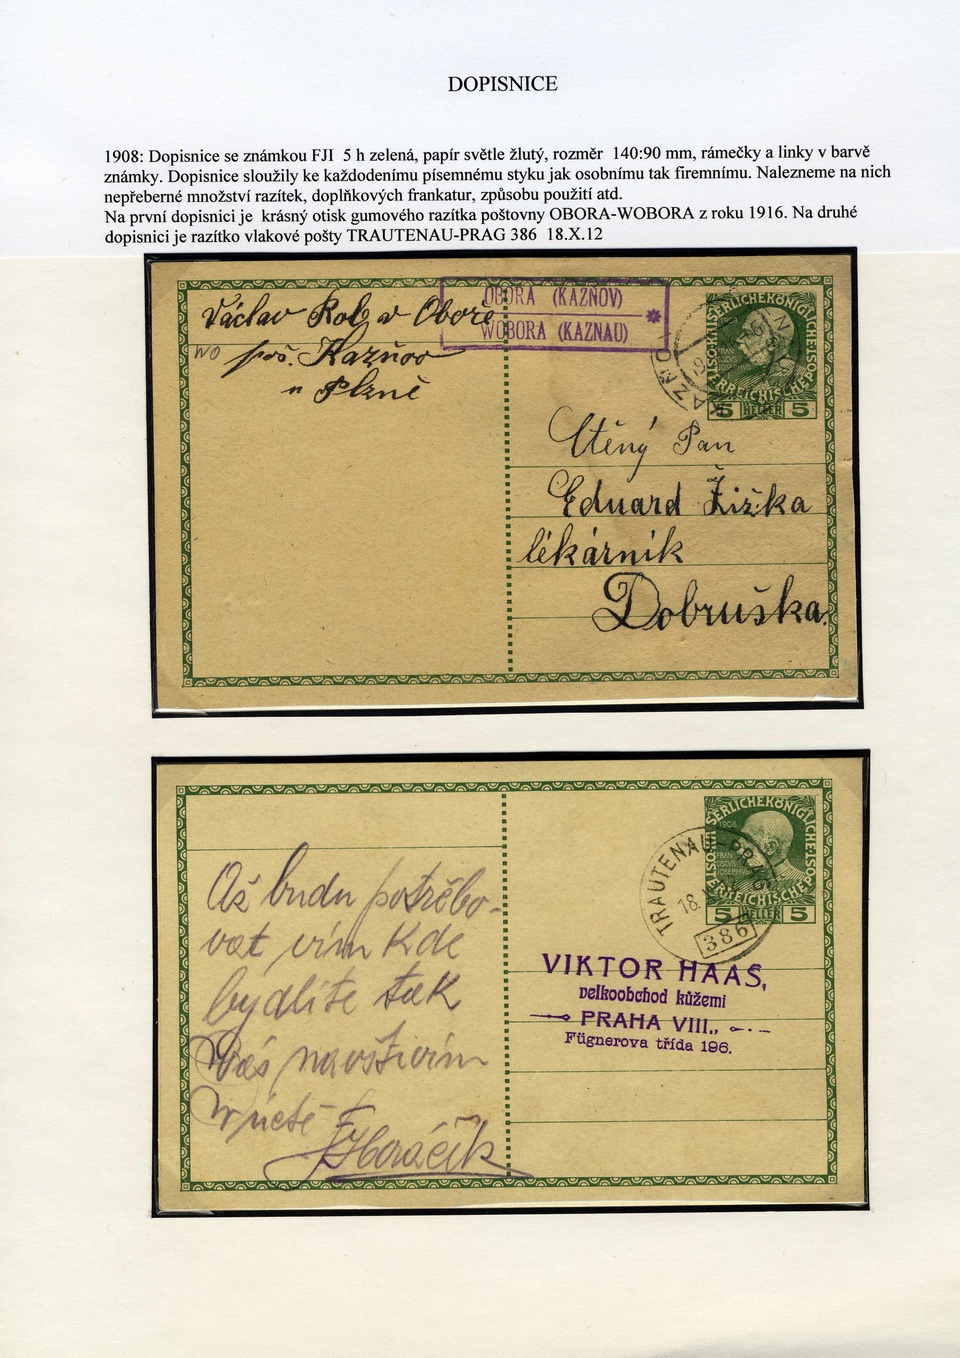 DOPISNICE
1908: Dopisnice se známkou FJI 5 h zelená, papír světle žlutý, rozměr 140:90 mm, rámečky a linky v barvě
známky. Dopisnice sloužily ke každodenímu písemnému styku jak osobnímu tak firemnímu. Nalezneme na nich
nepřeberné množství razítek, doplňkových frankatur, způsobu použití atd.
Na první dopisnici je krásný otisk gumového razítka poštovny OBORA-WOBORA z roku 1916. Na druhé
dopisnici je razítko vlakové pošty TRAUTENAU-PRAG 386 18.X.12
OBORA (KAZŇOV)
WOBORA (KAZNAU)
Václav Rob v Oboře
WO poš. Kazňov
u Plzně
5 HELLER 5
Ctěný Pan
Eduard Žižka
lékárník
Dobruška.
KAISERLICHEKÖNIGLICHE
1908
5 HELLER 5
TRAUTENAU-PRAG
18.
386
Až budu potřebo-
vat vím kde
bydlíte tak
Vás navštívím
V úctě
Horáčík
VIKTOR HAAS,
velkoobchod kůžemi
PRAHA VIII.,
Fügnerova třída 196.